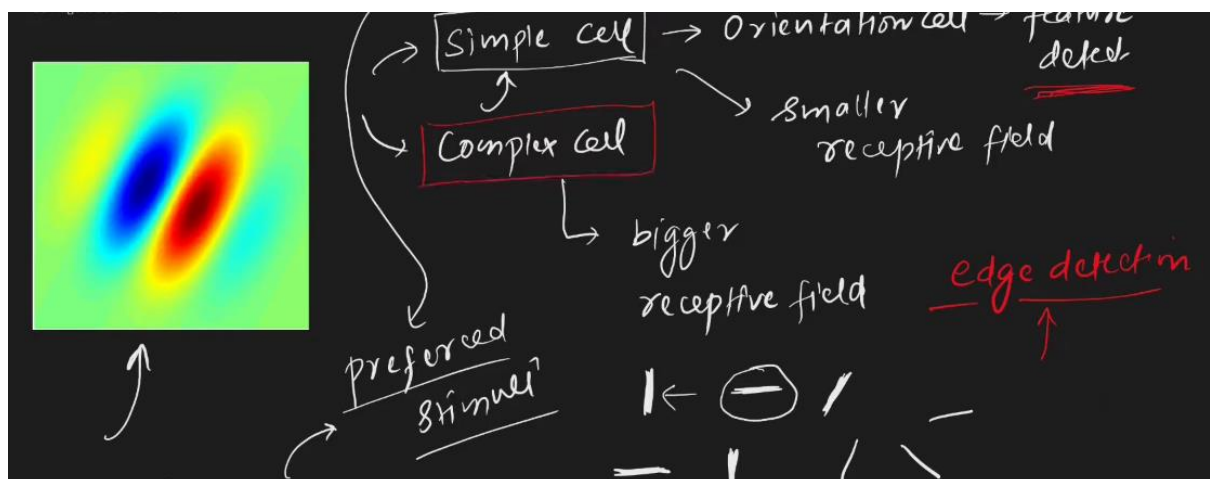 Simple cell → Orientation cell → feature
detect
smaller
receptive field
Complex cell
bigger
receptive field
edge detection
preferred
stimuli